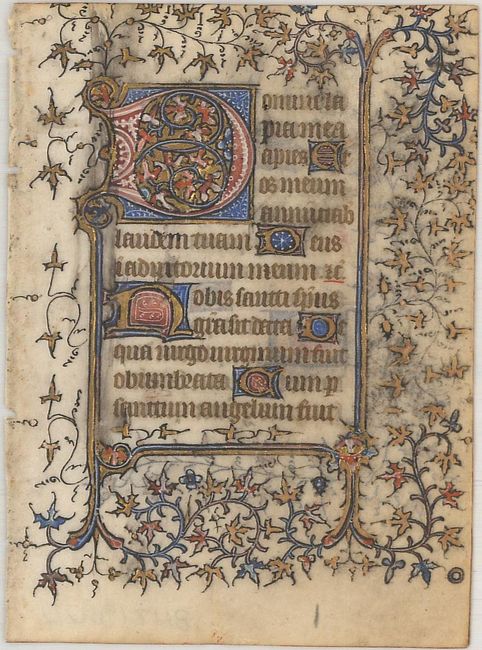 Domine la
bia mea
aperies Et
os meum
annutiab
laudem tuam Deus
in adiutorium meum
Nobis sancti sp̄us
gr̄a sit data De
qua virgo virginum fuit
obumbrata Cum p
sanctum angelum fuit